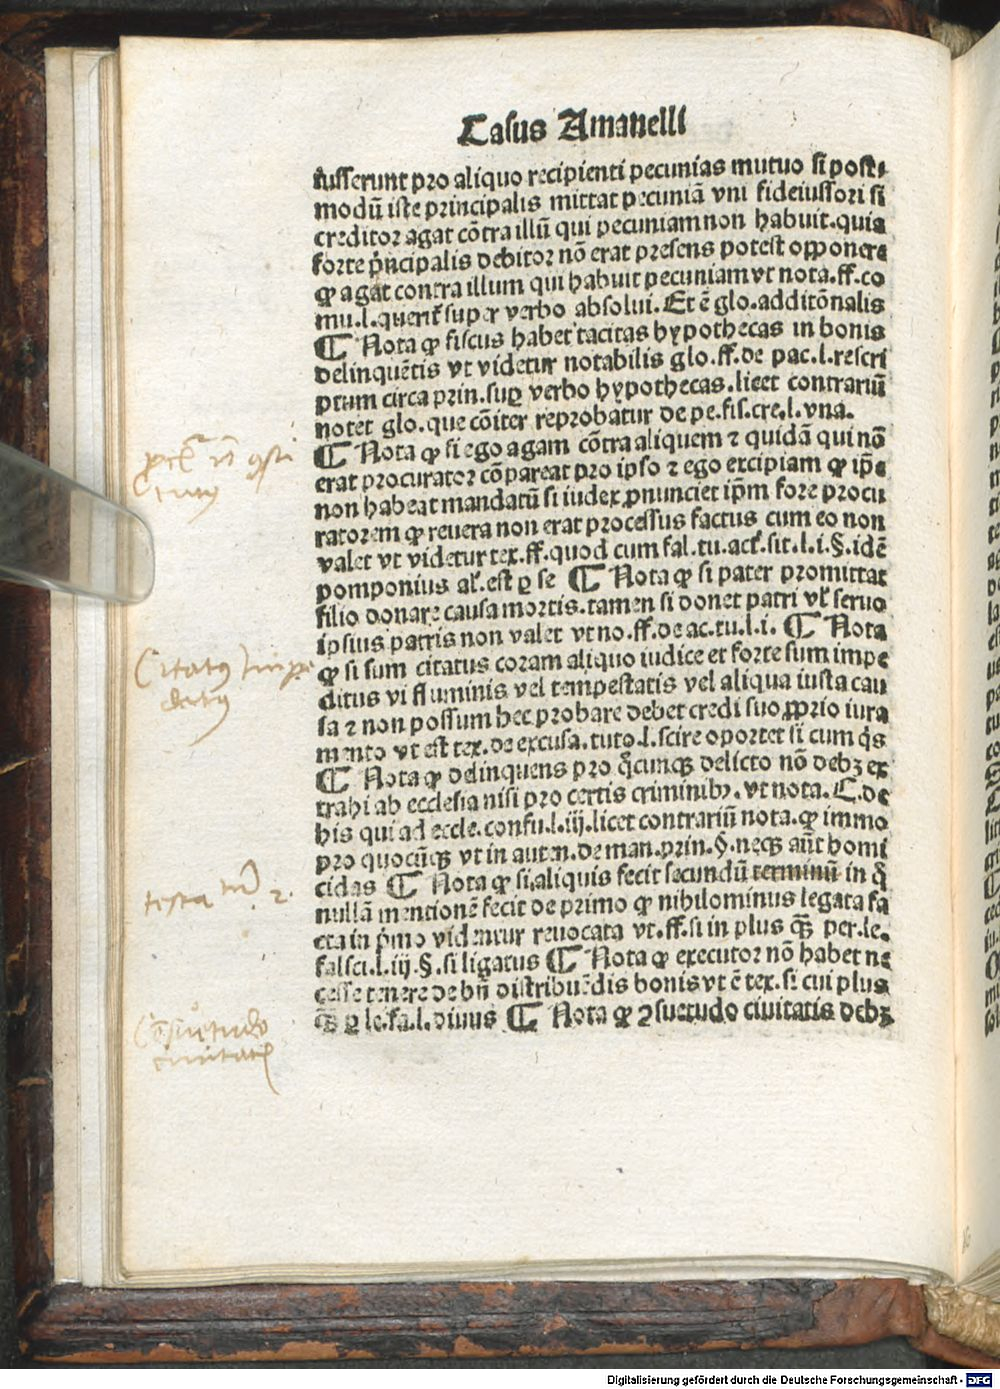 Casus Amanelli
iusserunt pro aliquo recipienti pecunias mutuo si post⸗
modū iste principalis mittat pecuniā vni fideiussori si
creditor agat cōtra illū qui pecuniam non habuit.quia
forte pͥncipalis debitor nō erat presens potest opponere
ꝙ agat contra illum qui habuit pecuniam vt nota.ff.co
mu.l.querit᷑ super verbo absolui.Et ē glo.additōnalis
⁋ Nota ꝙ fiscus habet tacitas hypothecas in bonis
delinquētis vt videtur notabilis glo.ff.de pac.l.rescri
ptum circa prin.suꝑ verbo hypothecas.licet contrariū
notet glo.que cōiter reprobatur de pe.fis.cre.l.vna.
⁋ Nota ꝙ si ego agam cōtra aliquem ⁊ quidā qui nō
erat procurator cōpareat pro ipso ⁊ ego excipiam ꝙ ip̄e
non habeat mandatū si iudex ꝓnunciet ip̄m fore procu
ratorem ꝙ reuera non erat processus factus cum eo non
valet vt videtur tex.ff.quod cum fal.tu.act᷑.sit.l.i.§.idē
pomponius al᷑.est ꝑ se ⁋ Nota ꝙ si pater promittat
filio donare causa mortis.tamen si donet patri vl᷑ seruo
ipsius patris non valet vt no.ff.de ac.tu.l.i. ⁋ Nota
ꝙ si sum citatus coram aliquo iudice et forte sum impe
ditus vi fluminis vel tempestatis vel aliqua iusta cau
sa ⁊ non possum hec probare debet credi suo ꝓprio iura
mento vt est tex.de excusa.tuto.l.scire oportet si cum q̄s
⁋ Nota ꝙ delinquens pro q̄cunqꝫ delicto nō debꝫ ex
trahi ab ecclesia nisi pro certis criminibꝰ.vt nota.C.de
his qui ad eccle.confu.l.iij.licet contrariū nota.ꝙ immo
pro quocūqꝫ vt in auten.de man.prin.§.neqꝫ aūt homi
cidas ⁋ Nota ꝙ si aliquis fecit secundū terminū in q̄
nullā mentionē fecit de primo ꝙ nihilominus legata fa
cta in pͥmo videntur reuocata vt.ff.si in plus qꝫ per.le.
falsci.l.iij.§.si ligatus ⁋ Nota ꝙ executor nō habet ne
cesse tenere de bn̄ distribuēdis bonis vt ē tex.si cui plus
qꝫ ꝑ le.fa.l.diuus ⁋ Nota ꝙ ꝯsuetudo ciuitatis debꝫ
Citatꝰ impe
ditus
testa tū 2.
Cōsuetudo
ciuitatis
Digitalisierung gefördert durch die Deutsche Forschungsgemeinschaft - DFG